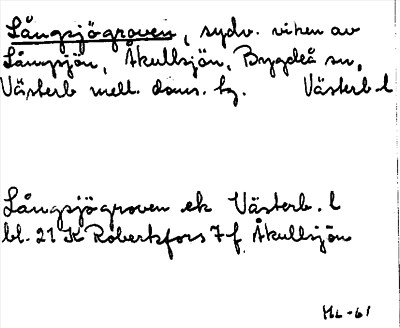 Långsjögroven, sydv. viken av
Långsjön, Åkullsjön, Bygdeå sn,
Västerb mell. doms. hg. Västerb l
Långsjögroven ek Västerb. l
bl. 21 K Robertsfors 7 f, Åkullsjön
HL-61